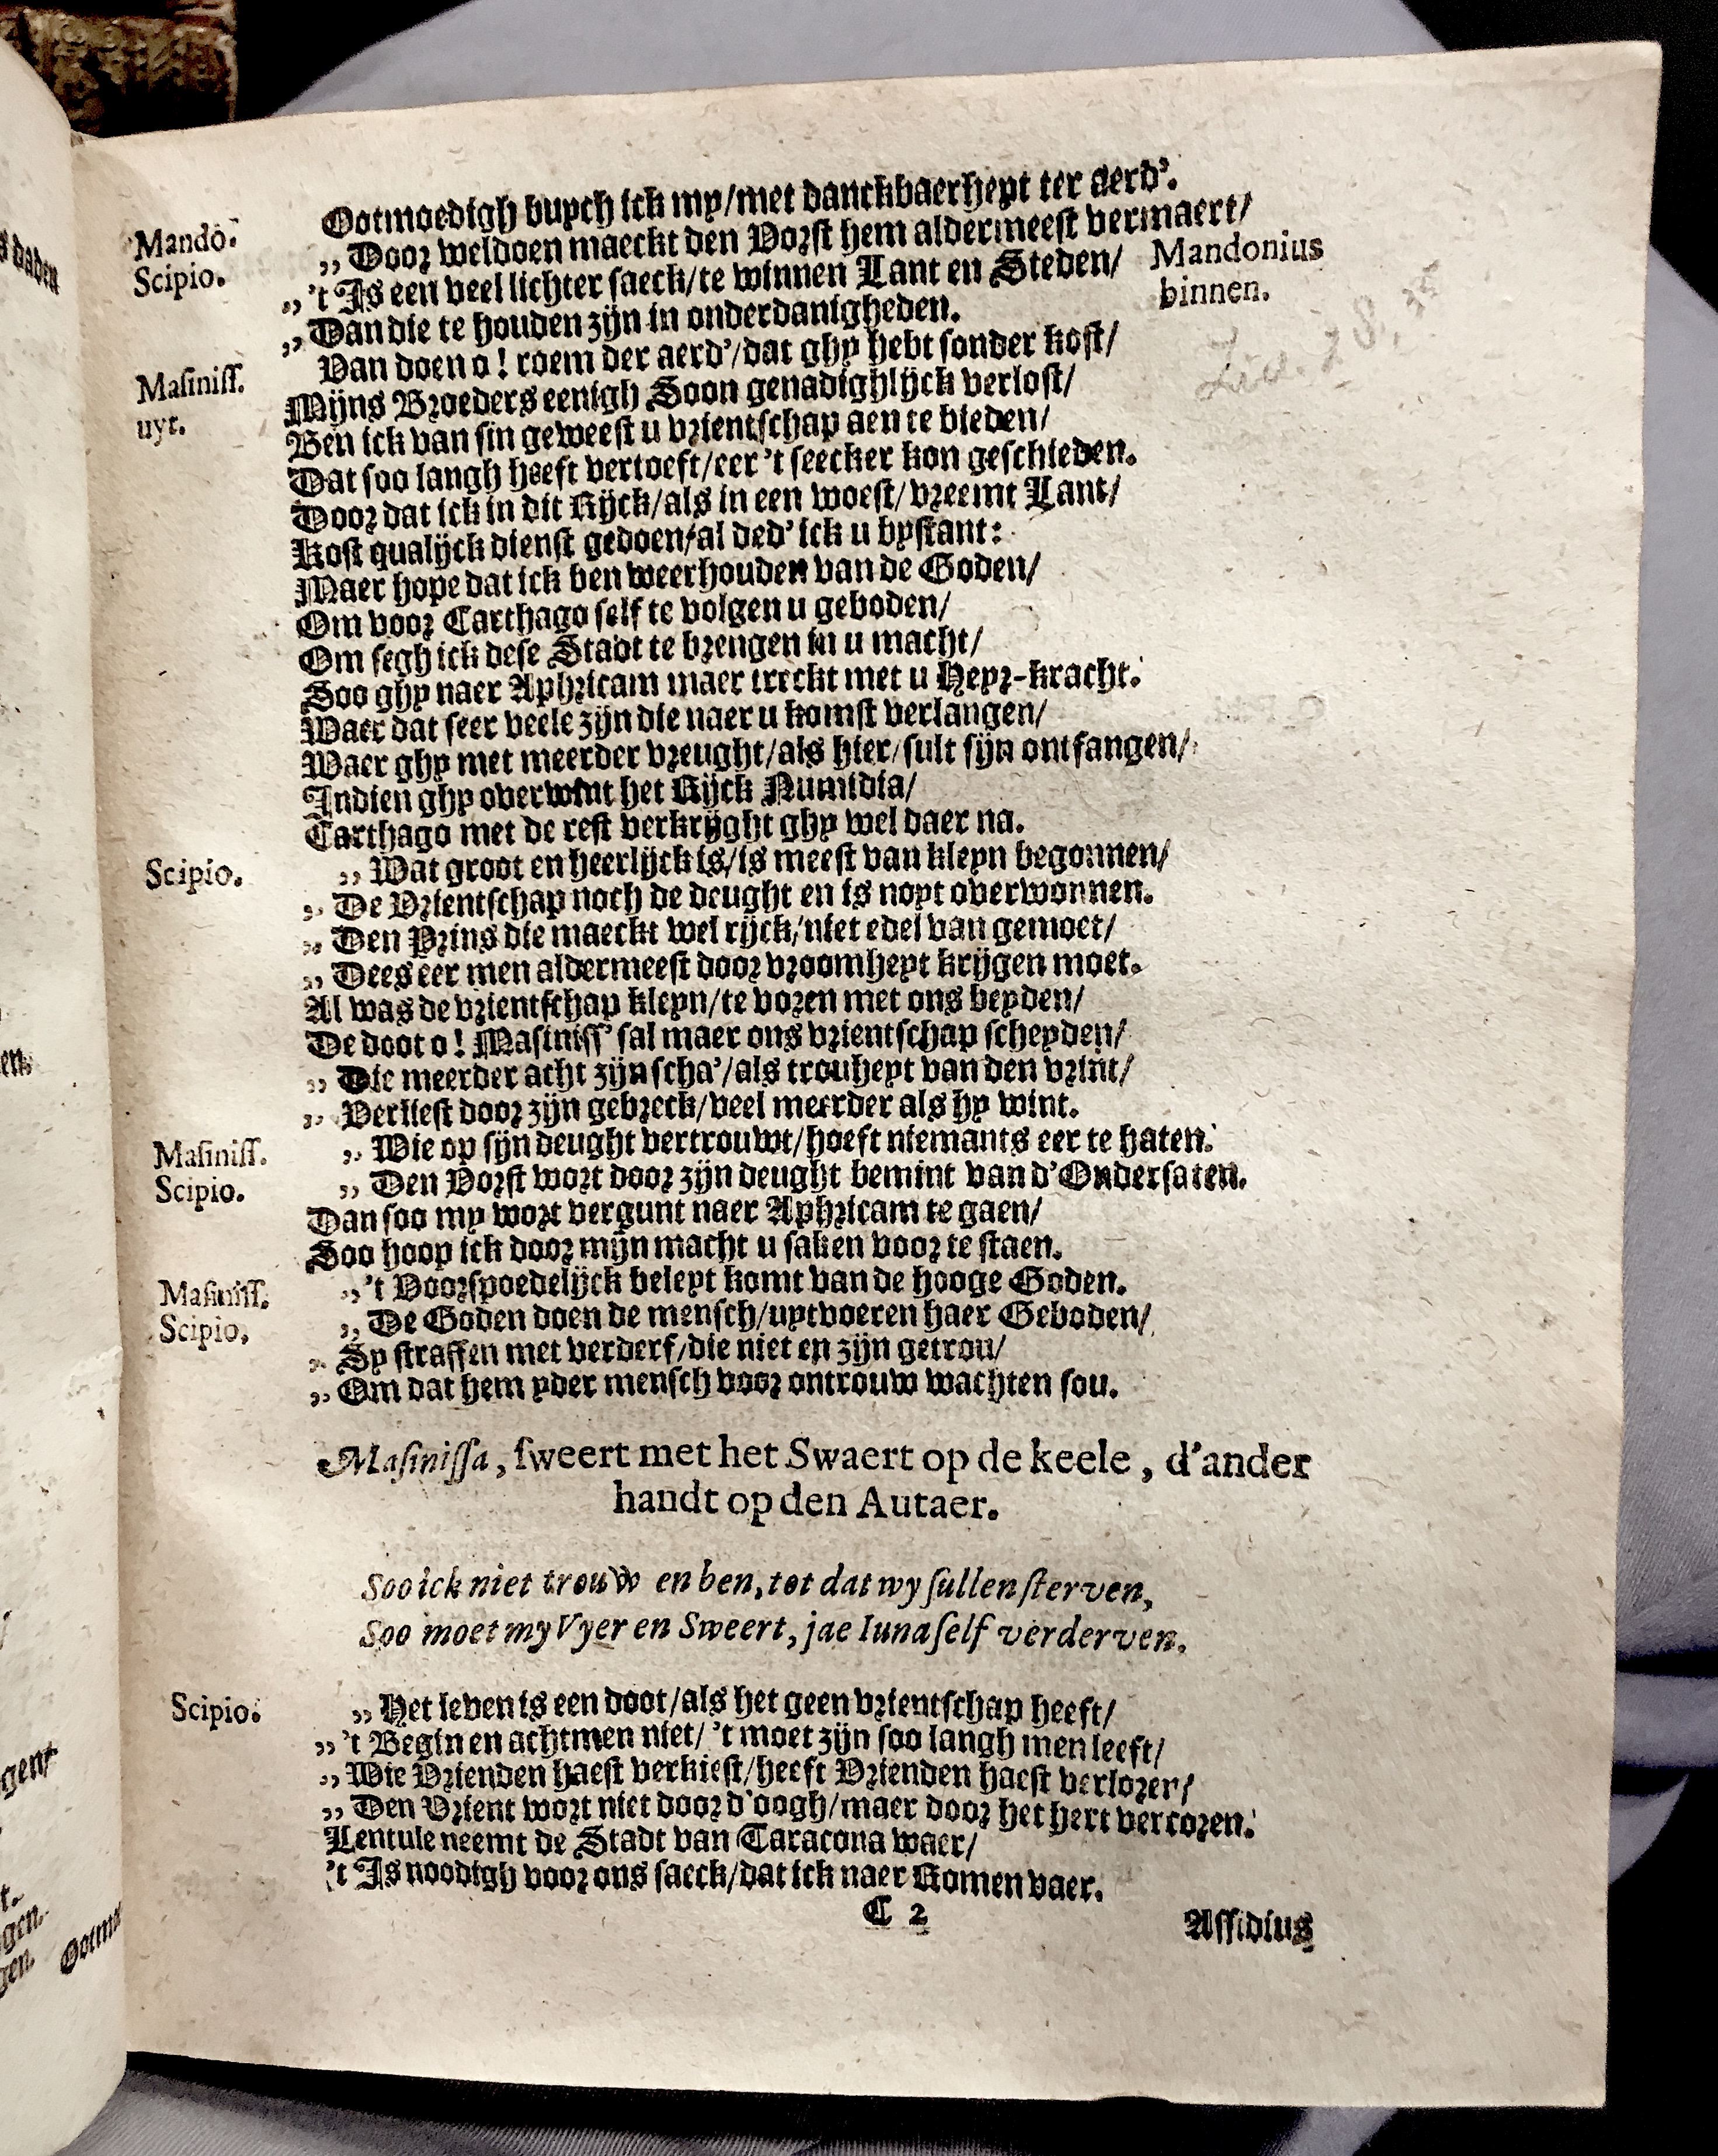 Mando. Ootmoedigh buych ick my/met danckbaerheyt ter aerd'.
Scipio. „ Door weldoen maeckt den Vorst hem aldermeest vermaert/
„ 't Is een veel lichter saeck/te winnen Lant en Steden/ Mandonius
„ Dan die te houden zijn in onderdanigheden. binnen.
Masiniss. Van doen o! roem der aerd'/dat ghy hebt sonder kost/
uyt. Mijns Broeders eenigh Soon genadighlijck verlost/
Ben ick van sin geweest u vrientschap aen te bieden/
Dat soo langh heeft vertoeft/eer 't seecker kon geschieden.
Door dat ick in dit Rijck/als in een woest/vreemt Lant/
Kost qualijck dienst gedoen/al ded' ick u bystant:
Maer hope dat ick ben weerhouden van de Goden/
Om voor Carthago self te volgen u geboden/
Om segh ick dese Stadt te brengen in u macht/
Soo ghy naer Aphricam maer treckt met u Heyr-kracht.
Waer dat seer veele zijn die naer u komst verlangen/
Waer ghy met meerder vreught/als hier/sult sijn ontfangen/
Indien ghy overwint het Rijck Numidia/
Carthago met de rest verkrijght ghy wel daer na.
Scipio. „ Wat groot en heerlijck is/is meest van kleyn begonnen/
„ De Vrientschap noch de deught en is noyt overwonnen.
„ Den Prins die maeckt wel rijck/niet edel van gemoet/
„ Dees eer men aldermeest door vroomheyt krijgen moet.
Al was de vrientschap kleyn/te voren met ons beyden/
De doot o! Masiniss' sal maer ons vrientschap scheyden/
„ Die meerder acht zijn scha'/als trouheyt van den vrint/
„ Verliest door zijn gebreck/veel meerder als hy wint.
Masiniss. „ Wie op sijn deught vertrouwt/hoeft niemants eer te haten.
Scipio. „ Den Vorst wort door zijn deught bemint van d'Ondersaten.
Dan soo my wort vergunt naer Aphricam te gaen/
Soo hoop ick door mijn macht u saken voor te staen.
Masiniss. „ 't Voorspoedelijck beleyt komt van de hooge Goden.
Scipio. „ De Goden doen de mensch/uytvoeren haer Geboden/
„ Sy straffen met verderf/die niet en zijn getrou/
„ Om dat hem yder mensch voor ontrouw wachten sou.
Masinissa, sweert met het Swaert op de keele, d'ander
handt op den Autaer.
Soo ick niet trouw en ben, tot dat wy sullen sterven,
Soo moet my Vyer en Sweert, jae Iuna self verderven.
Scipio. „ Het leven is een doot/als het geen vrientschap heeft/
„ 't Begin en achtmen niet/ 't moet zijn soo langh men leeft/
„ Wie Vrienden haest verkiest/heeft Vrienden haest verlozen/
„ Den Vrient wort niet door d'oogh/maer door het hert vercozen.
Lentule neemt de Stadt van Taracona waer/
't Is noodigh voor ons saeck/dat ick naer Romen vaer.
C 2 Assidius